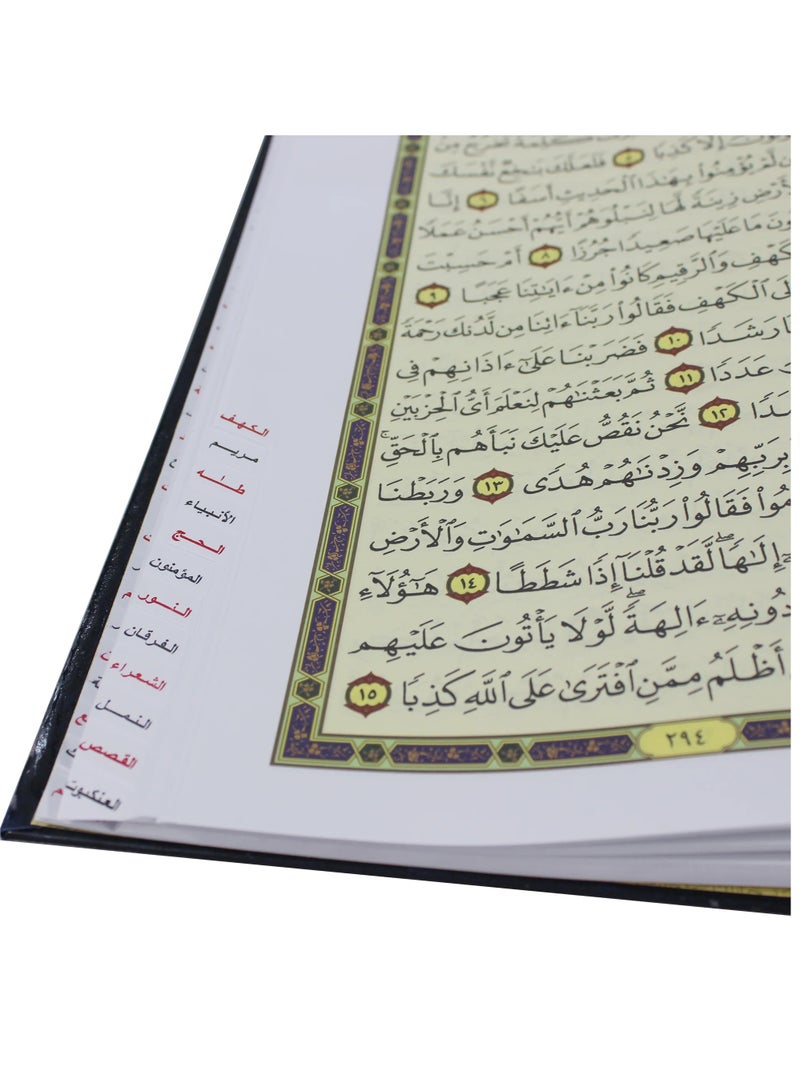 كَلِمَةً تَخْرُجُ مِنْ
إِلَّا كَذِبًا ٥ فَلَعَلَّكَ بَٰخِعٌ نَّفْسَكَ
لَّمْ يُؤْمِنُوا۟ بِهَٰذَا ٱلْحَدِيثِ أَسَفًا ٦ إِنَّا
زِينَةً لَّهَا لِنَبْلُوَهُمْ أَيُّهُمْ أَحْسَنُ عَمَلًا
مَا عَلَيْهَا صَعِيدًا جُرُزًا ٨ أَمْ حَسِبْتَ
وَٱلرَّقِيمِ كَانُوا۟ مِنْ ءَايَٰتِنَا عَجَبًا ٩
ٱلْكَهْفِ فَقَالُوا۟ رَبَّنَآ ءَاتِنَا مِن لَّدُنكَ رَحْمَةً
رَشَدًا ١٠ فَضَرَبْنَا عَلَىٰٓ ءَاذَانِهِمْ فِى
عَدَدًا ١١ ثُمَّ بَعَثْنَٰهُمْ لِنَعْلَمَ أَىُّ ٱلْحِزْبَيْنِ
١٢ نَّحْنُ نَقُصُّ عَلَيْكَ نَبَأَهُم بِٱلْحَقِّ ۚ
بِرَبِّهِمْ وَزِدْنَٰهُمْ هُدًى ١٣ وَرَبَطْنَا
فَقَالُوا۟ رَبُّنَا رَبُّ ٱلسَّمَٰوَٰتِ وَٱلْأَرْضِ
إِلَٰهًا ۖ لَّقَدْ قُلْنَآ إِذًا شَطَطًا ١٤ هَٰٓؤُلَآءِ
دُونِهِۦٓ ءَالِهَةً ۖ لَّوْلَا يَأْتُونَ عَلَيْهِم
أَظْلَمُ مِمَّنِ ٱفْتَرَىٰ عَلَى ٱللَّهِ كَذِبًا ١٥
٢٩٤
الكهف
مريم
طـٰه
الأنبياء
الحج
المؤمنون
النور
الفرقان
الشعراء
النمل
القصص
العنكبوت